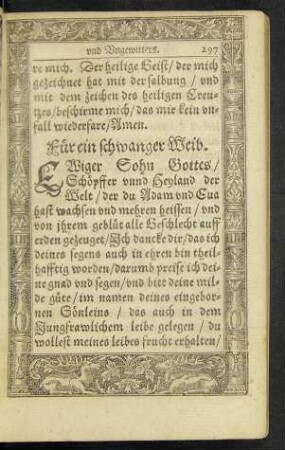 vnd Vngewitters. 297
re mich. Der heilige Geist/ der mich
gezeichnet hat mit der salbung/ vnd
mit dem zeichen des heiligen Creu-
tzes/ beschirme mich/ das mir kein vn-
fall wiederfare/ Amen.
Für ein schwanger Weib.
EWiger Sohn Gottes/
Schöpffer vnnd Heyland der
Welt/ der du Adam vnd Eua
hast wachsen vnd mehren heissen/ vnd
von jhrem geblüt alle Geschlecht auff
erden gezeuget/ Ich dancke dir/ das ich
deines segens auch in ehren bin theil-
hafftig worden/ darumb preise ich dei-
ne gnad vnd segen/ vnd bitt deine mil-
de güte/ im namen deines eingebor-
nen Sönleins/ das auch in dem
Jungfrawlichem leibe gelegen/ du
wollest meines leibes frucht erhalten/